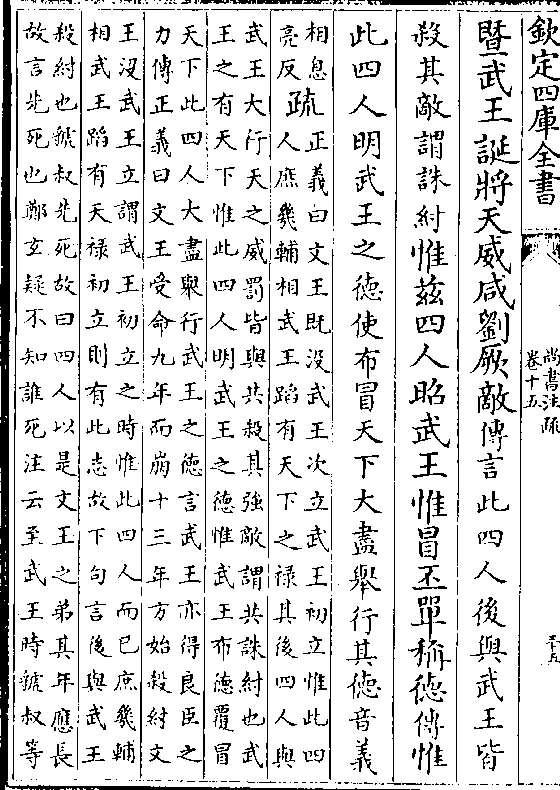 欽定四庫全書
尚書注疏
卷十五
暨武王誕將天威咸劉厥敵傳言此四人後與武王皆
殺其敵謂誅紂惟兹四人昭武王惟冒丕單稱德傳惟
此四人明武王之德使布冒天下大盡舉行其德音義
相息
亮反
疏
正義曰文王既没武王次立武王初立惟此四
人庶幾輔相武王蹈有天下之禄其後四人與
武王大行天之威罰皆與共殺其強敵謂共誅紂也武
王之有天下惟此四人明武王之德惟武王布德覆冒
天下此四人大盡舉行武王之德言武王亦得良臣之
力傳正義曰文王受命九年而崩十三年方始殺紂文
王没武王立謂武王初立之時惟此四人而已庶幾輔
相武王蹈有天禄初立則有此志故下句言後與武王
殺紂也虢叔先死故曰四人以是文王之弟其年應長
故言先死也鄭玄疑不知誰死注云至武王時虢叔等